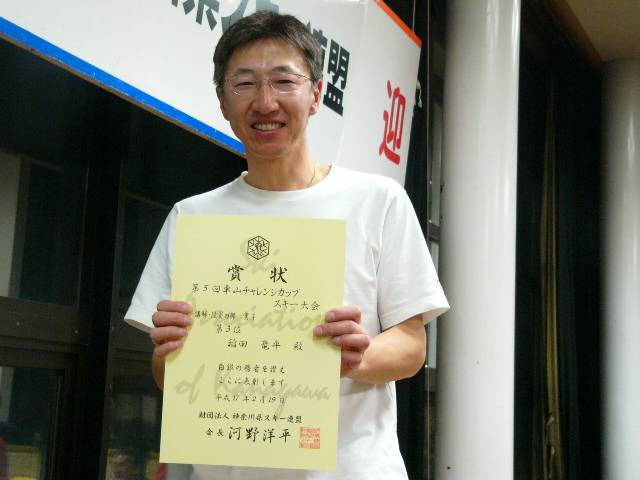 県スキー連盟
迎
賞状
第5回車山チャレンジカップ
スキー大会
Ski
Association
of Kanagawa
第3位
稲田 竜平 殿
白銀の勝者を讃え
ここに表彰します
平成17年2月19日
財団法人 神奈川県スキー連盟
会長 河野洋平